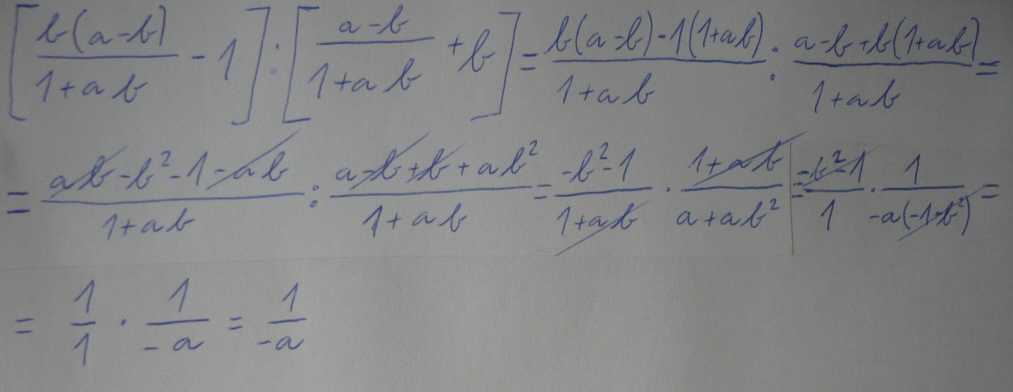 [b(a-b)/(1+ab) - 1] : [(a-b)/(1+ab) + b] = (b(a-b)-1(1+ab))/(1+ab) : (a-b+b(1+ab))/(1+ab) =
= (ab-b²-1-ab)/(1+ab) : (a-b+b+ab²)/(1+ab) = (-b²-1)/(1+ab) · (1+ab)/(a+ab²) = (-b²-1)/1 · 1/(-a(-1-b²)) =
= 1/1 · 1/(-a) = 1/(-a)